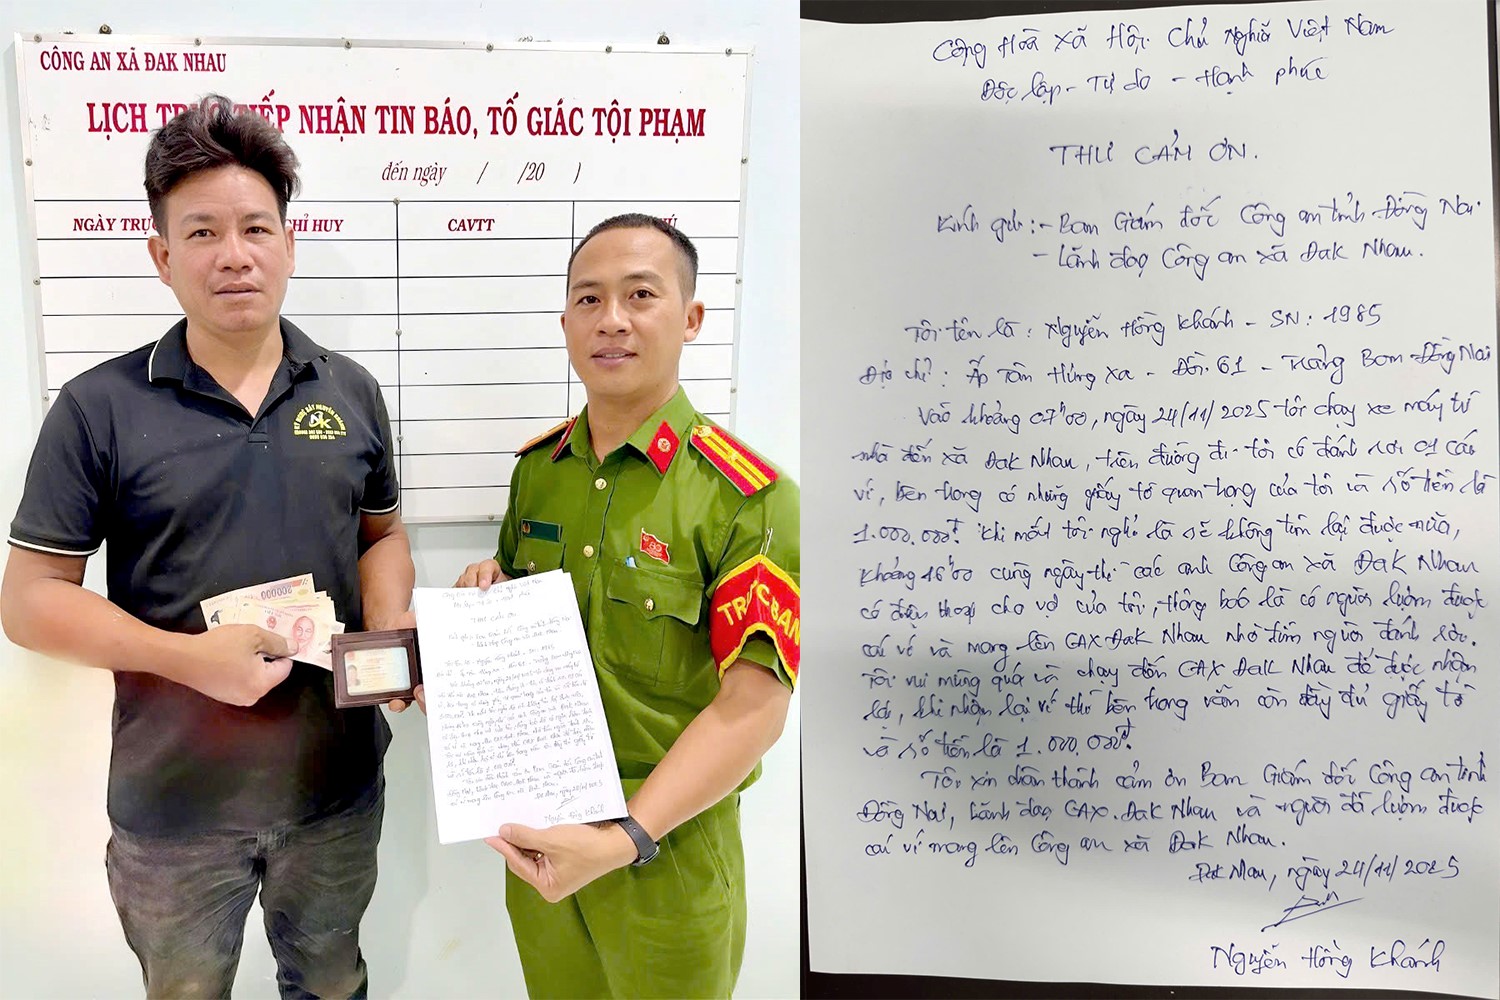 CÔNG AN XÃ ĐAK NHAU
LỊCH TRỰC TIẾP NHẬN TIN BÁO, TỐ GIÁC TỘI PHẠM
đến ngày / /20 )
NGÀY TRỰC CHỈ HUY CAVTT CHÚ
TRỰC BAN
Cộng Hoà Xã Hội Chủ Nghĩa Việt Nam
Độc lập - Tự do - Hạnh phúc
THƯ CẢM ƠN.
Kính gửi: - Ban Giám đốc Công an tỉnh Đồng Nai.
- Lãnh đạo Công an xã Đak Nhau.
Tôi tên là: Nguyễn Hồng Khánh - SN: 1985
Địa chỉ: Ấp Tân Hưng Xa - Đồi. 61 - Trảng Bom - Đồng Nai
Vào khoảng 07h00, ngày 24/11/2025 tôi chạy xe máy từ
nhà đến xã Đak Nhau, trên đường đi tôi có đánh rơi 01 cái
ví, bên trong có những giấy tờ quan trọng của tôi và số tiền là
1.000.000đ. Khi mất tôi nghĩ là sẽ không tìm lại được nữa,
khoảng 16h00 cùng ngày thì các anh Công an xã Đak Nhau
có điện thoại cho vợ của tôi, thông báo là có người lượm được
cái ví và mang lên CAX Đak Nhau nhờ tìm người đánh rơi.
Tôi vui mừng quá và chạy đến CAX Đak Nhau để được nhận
lại, khi nhận lại ví thì bên trong vẫn còn đầy đủ giấy tờ
và số tiền là 1.000.000đ.
Tôi xin chân thành cảm ơn Ban Giám đốc Công an tỉnh
Đồng Nai, Lãnh đạo CAX. Đak Nhau và người đã lượm được
cái ví mang lên Công an xã Đak Nhau.
Đak Nhau, ngày 24/11/2025
Nguyễn Hồng Khánh